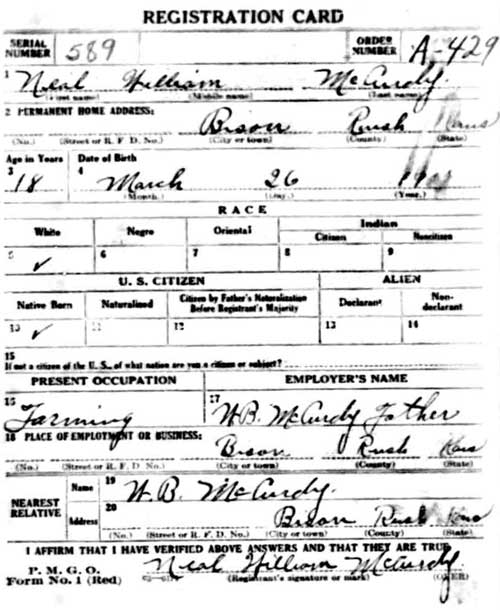 REGISTRATION CARD
SERIAL NUMBER 589 ORDER NUMBER A-429
1 Neal William McCurdy.
(First name) (Middle name) (Last name)
2 PERMANENT HOME ADDRESS:
Bison Rush Kans
(No.) (Street or R. F. D. No.) (City or town) (County) (State)
Age in Years Date of Birth
3 4
18 March 26
(Month.) (Day.) (Year.)
RACE
White Negro Oriental Indian
Citizen Noncitizen
5 ✓ 6 7 8 9
U. S. CITIZEN ALIEN
Native Born Naturalized Citizen by Father's Naturalization Before Registrant's Majority Declarant Non-declarant
10 ✓ 11 12 13 14
15
If not a citizen of the U. S., of what nation are you a citizen or subject?
PRESENT OCCUPATION EMPLOYER'S NAME
16 17
Farming W.B. McCurdy Father
18 PLACE OF EMPLOYMENT OR BUSINESS:
Bison Rush Kans
(No.) (Street or R. F. D. No.) (City or town) (County) (State)
NEAREST RELATIVE
Name 19 W. B. McCurdy.
Address 20 Bison Rush Kans
(No.) (Street or R. F. D. No.) (City or town) (County) (State)
I AFFIRM THAT I HAVE VERIFIED ABOVE ANSWERS AND THAT THEY ARE TRUE
P. M. G. O.
Form No. 1 (Red) Neal William McCurdy.
(Registrant's signature or mark) (OVER)